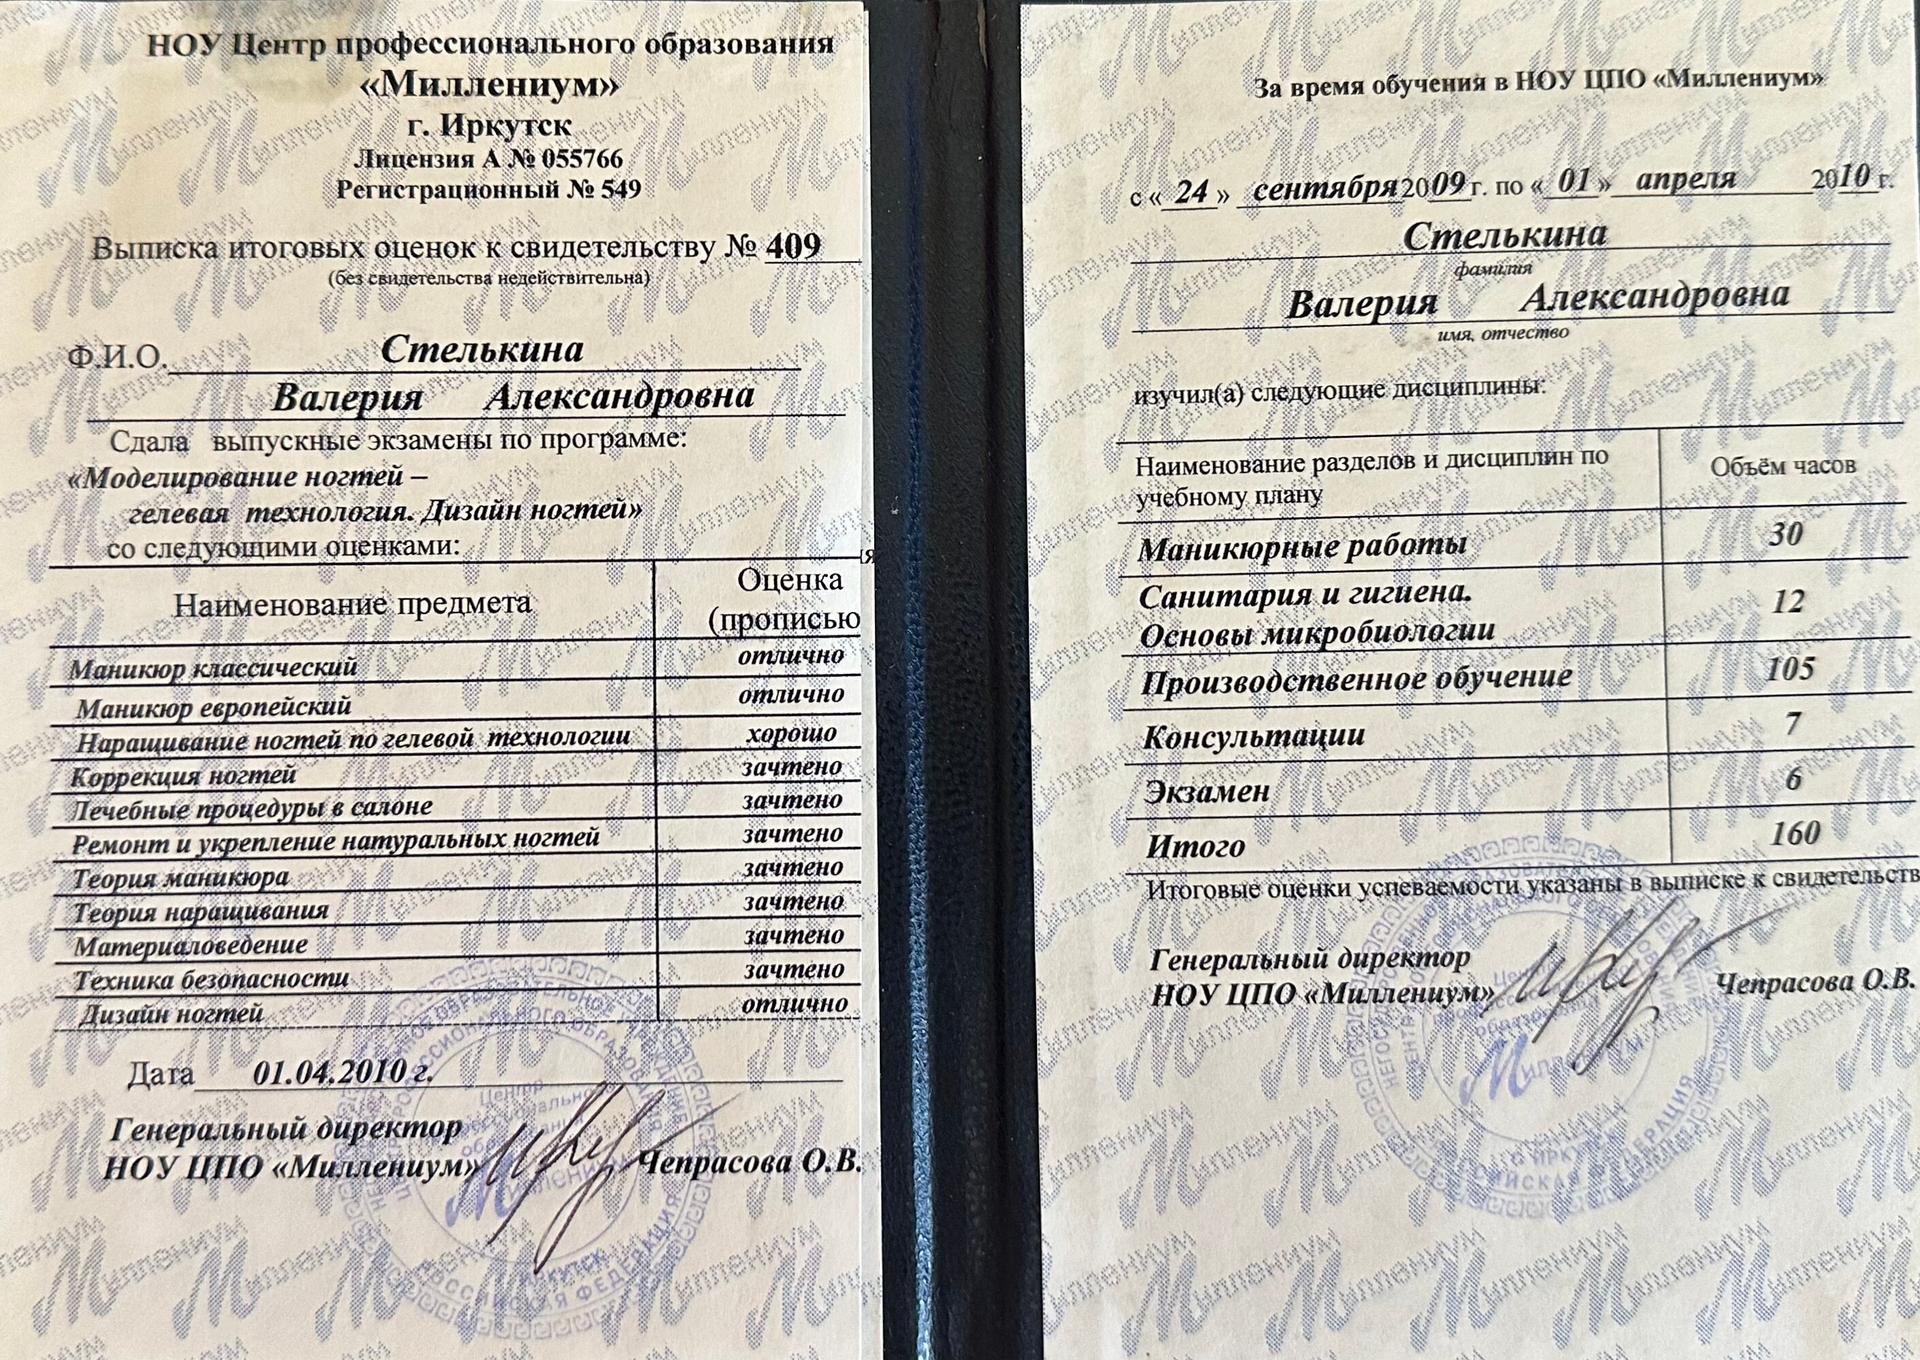 НОУ Центр профессионального образования
«Миллениум»
г. Иркутск
Лицензия А № 055766
Регистрационный № 549
Выписка итоговых оценок к свидетельству № 409
(без свидетельства недействительна)
Ф.И.О. Стелькина
Валерия Александровна
Сдала выпускные экзамены по программе:
«Моделирование ногтей –
гелевая технология. Дизайн ногтей»
со следующими оценками:
Наименование предмета Оценка (прописью
Маникюр классический отлично
Маникюр европейский отлично
Наращивание ногтей по гелевой технологии хорошо
Коррекция ногтей зачтено
Лечебные процедуры в салоне зачтено
Ремонт и укрепление натуральных ногтей зачтено
Теория маникюра зачтено
Теория наращивания зачтено
Материаловедение зачтено
Техника безопасности зачтено
Дизайн ногтей отлично
Дата 01.04.2010 г.
Генеральный директор
НОУ ЦПО «Миллениум» Чепрасова О.В.
За время обучения в НОУ ЦПО «Миллениум»
с «24» сентября 2009 г. по «01» апреля 2010 г.
Стелькина
фамилия
Валерия Александровна
имя, отчество
изучил(а) следующие дисциплины:
Наименование разделов и дисциплин по учебному плану Объём часов
Маникюрные работы 30
Санитария и гигиена.
Основы микробиологии 12
Производственное обучение 105
Консультации 7
Экзамен 6
Итого 160
Итоговые оценки успеваемости указаны в выписке к свидетельств
Генеральный директор
НОУ ЦПО «Миллениум» Чепрасова О.В.